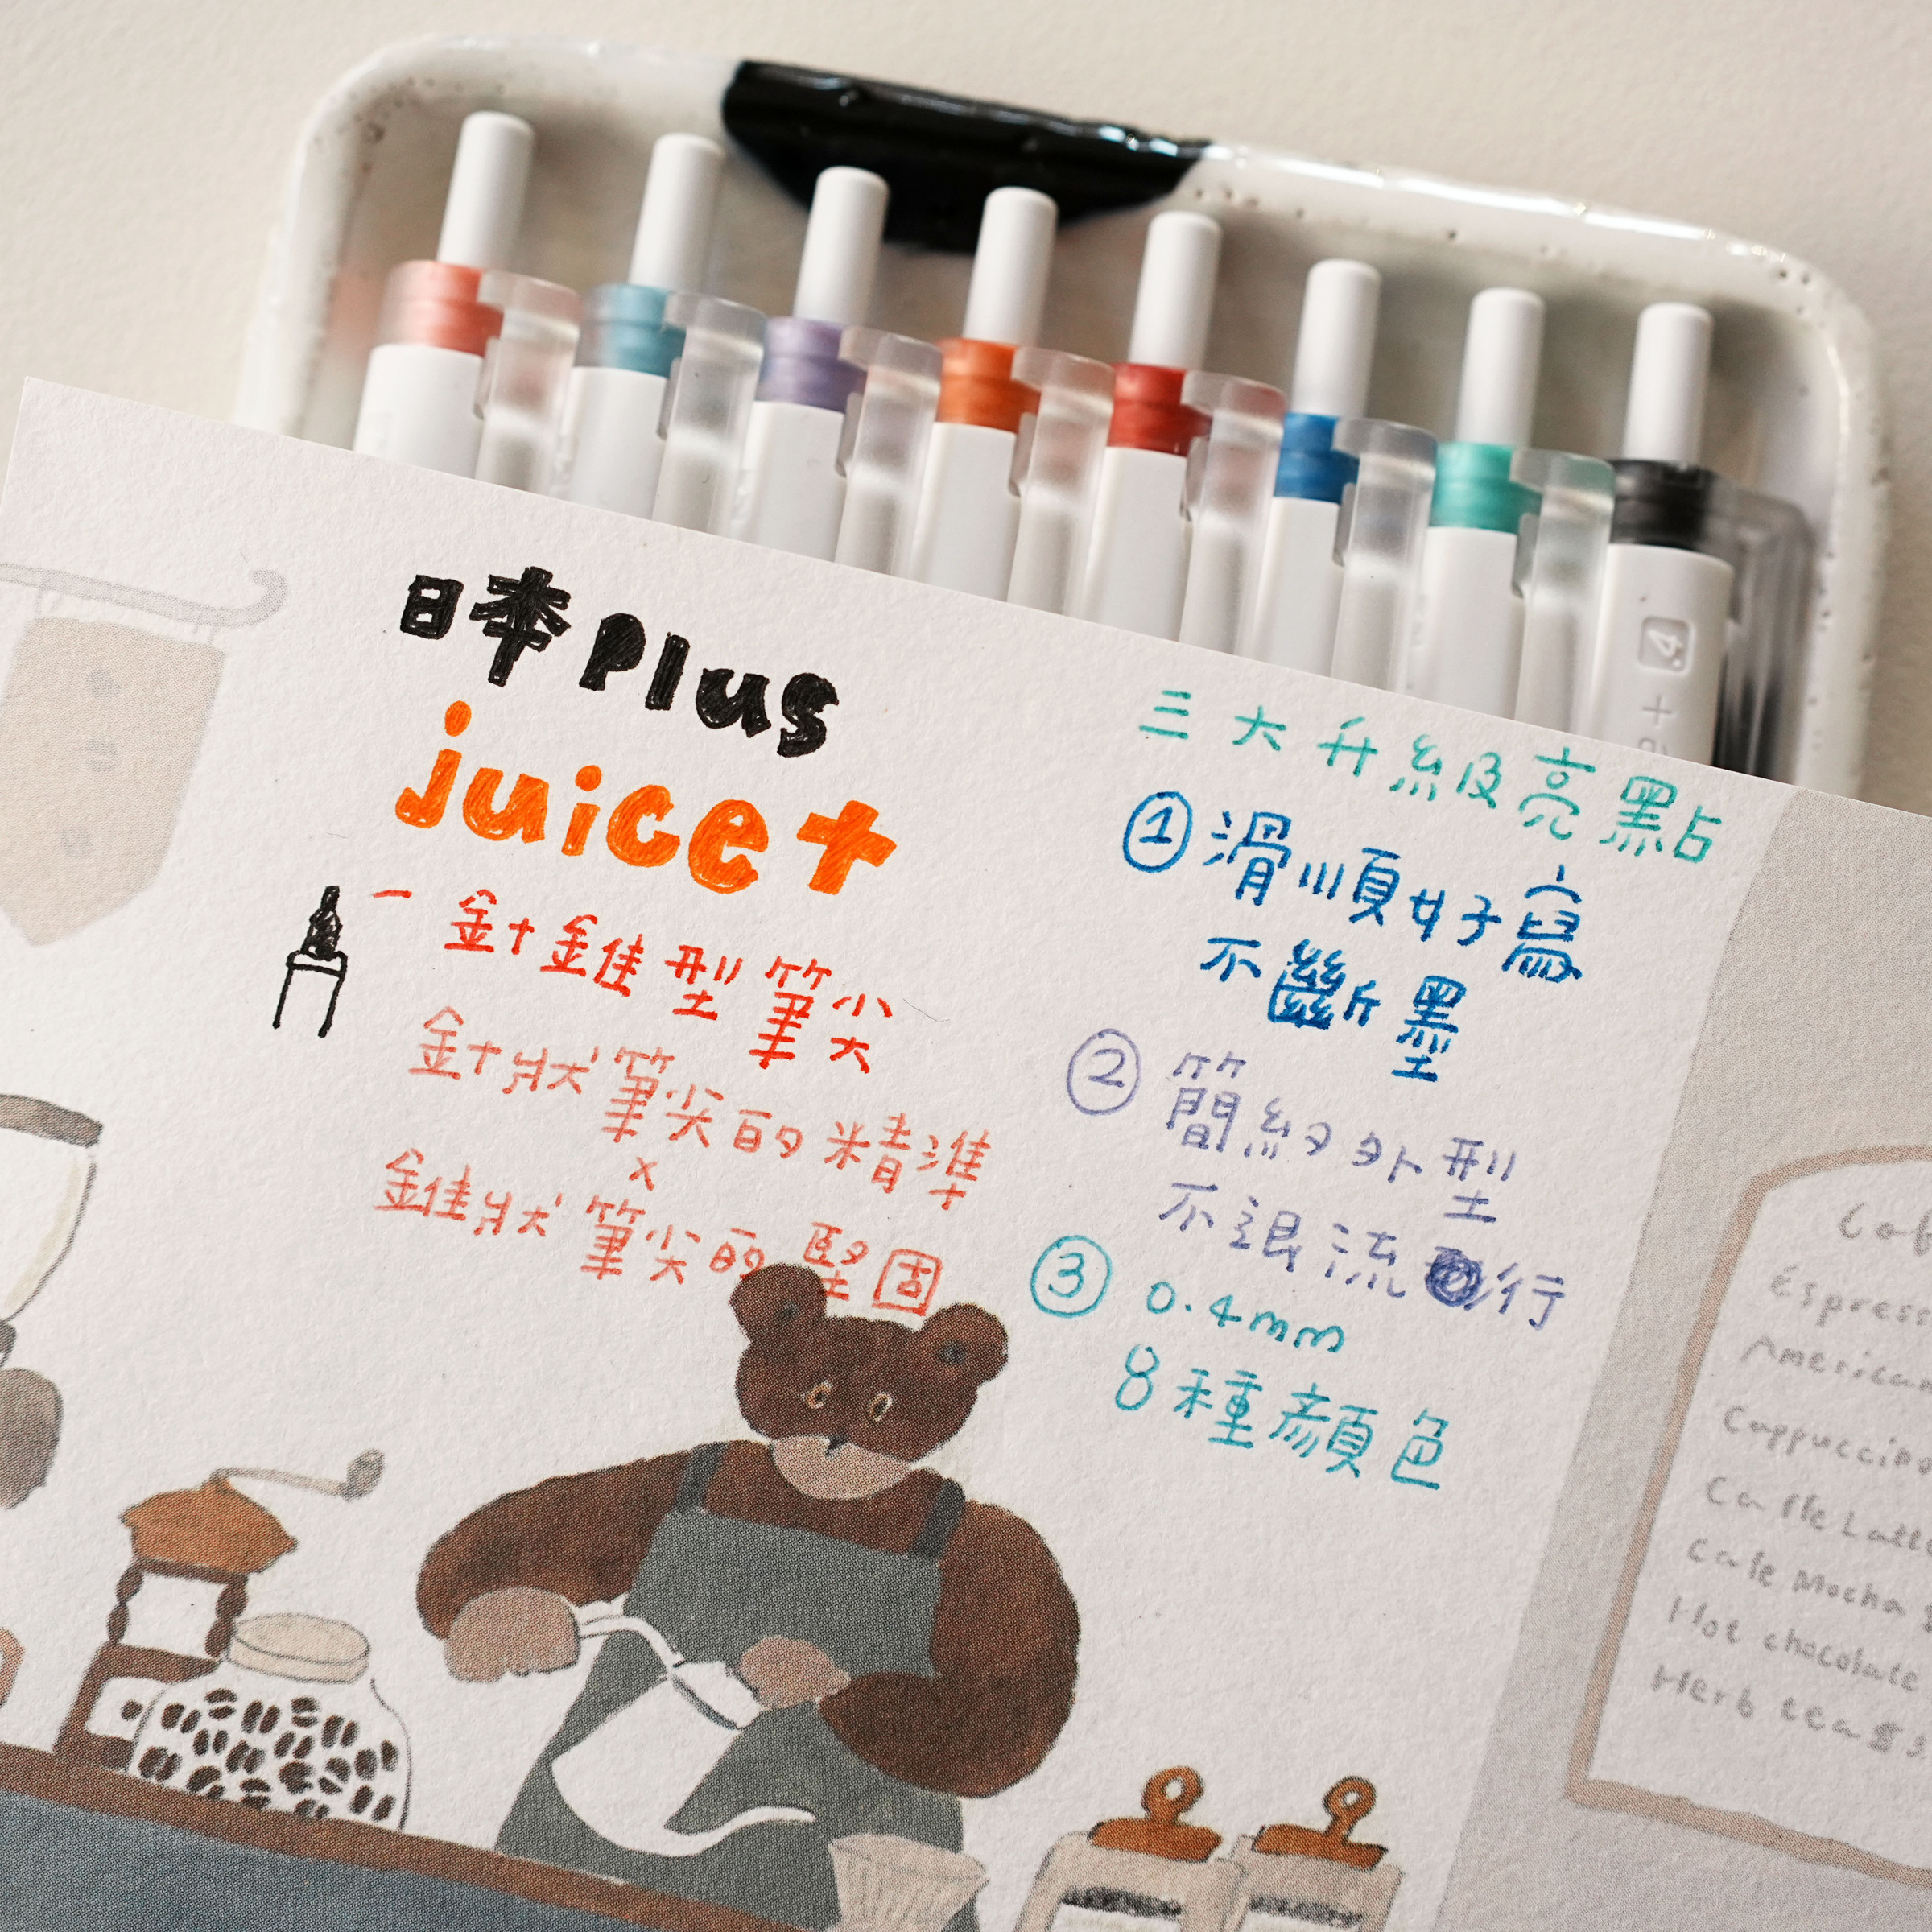 日本 Plus
juice+
- 針錐型筆尖
針狀筆尖的精準
x
錐狀筆尖的堅固
三大升級亮點
① 滑順好寫
不斷墨
② 簡約外型
不退流行
③ 0.4mm
8種顏色
Espress
American
Cappuccino
Caffe Latte
Cafe Mocha
Hot chocolate
Herb tea $3